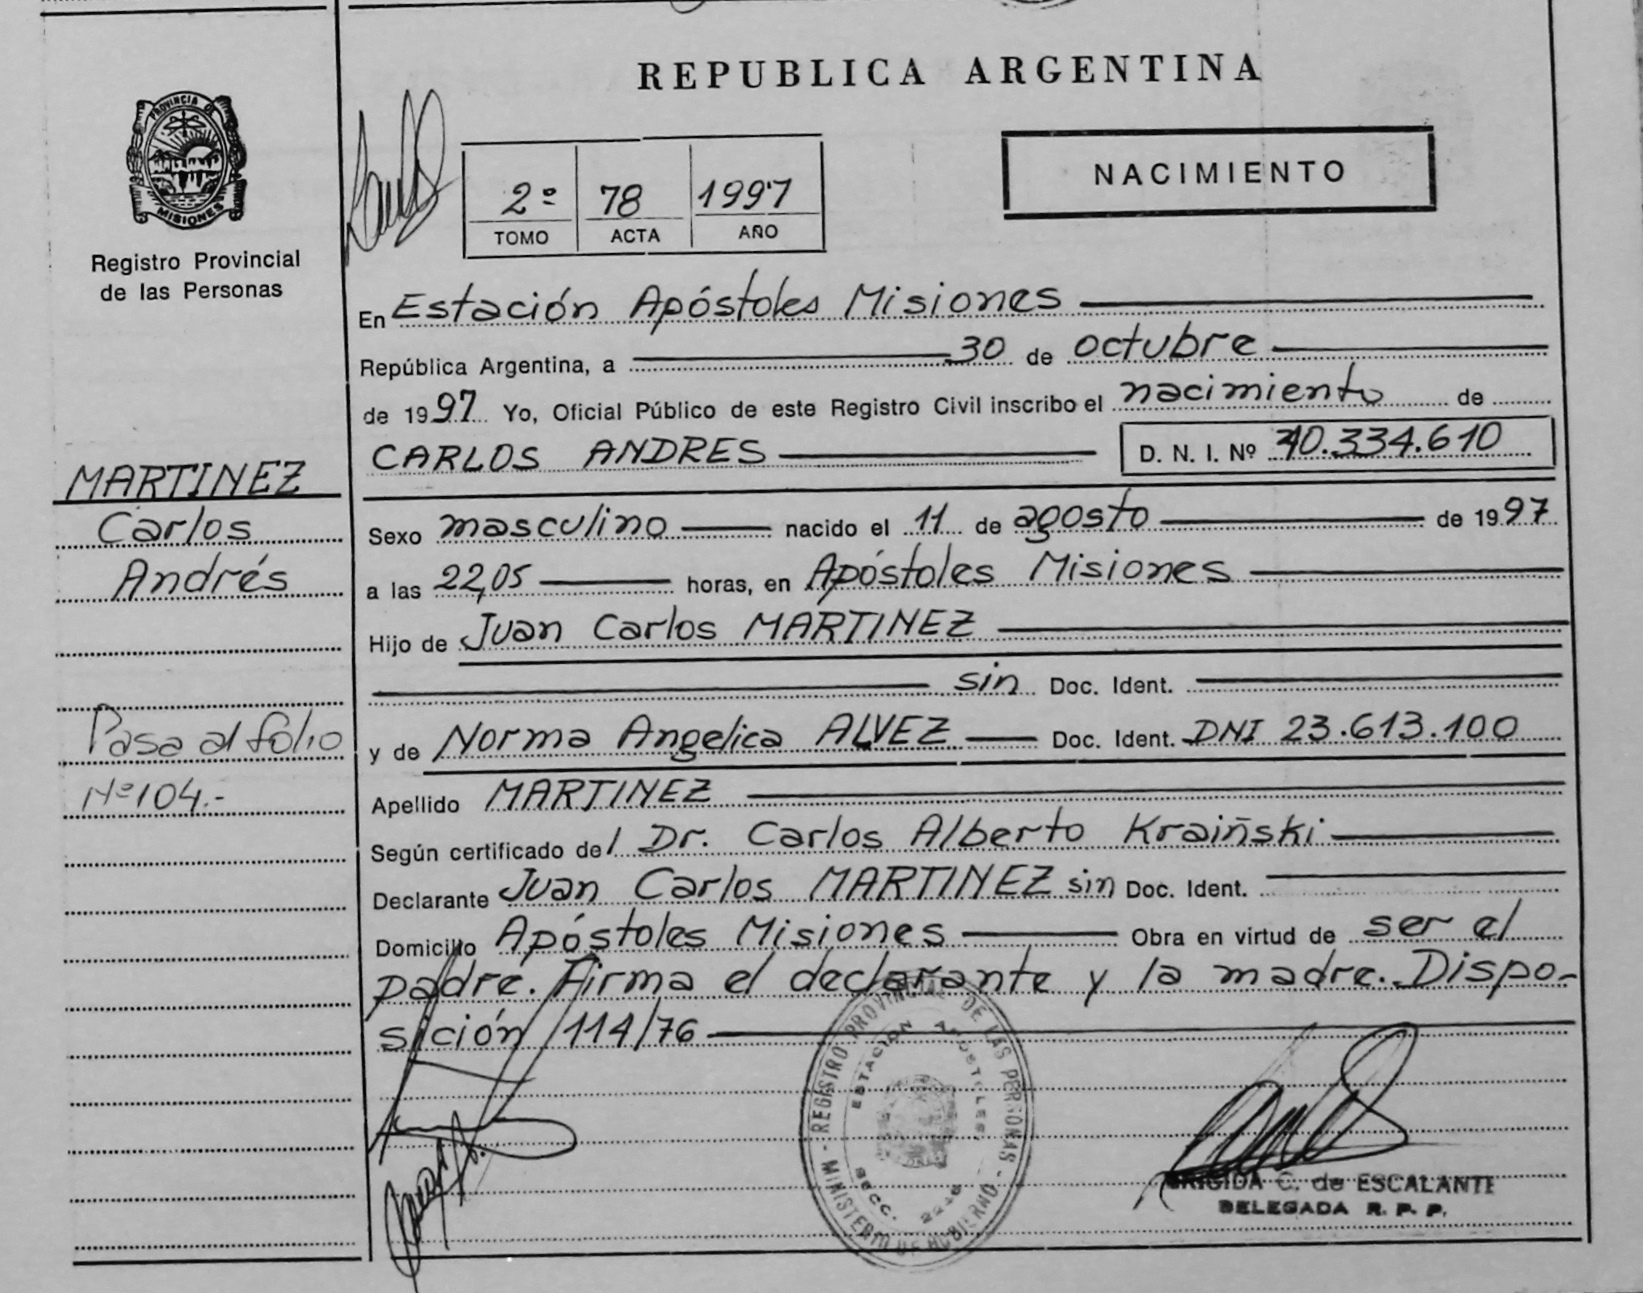 REPUBLICA ARGENTINA
PROVINCIA DE
MISIONES
Registro Provincial
de las Personas
2º 78 1997
TOMO ACTA AÑO
NACIMIENTO
En Estación Apóstoles Misiones
República Argentina, a 30 de octubre
de 1997 Yo, Oficial Público de este Registro Civil inscribo el nacimiento de
CARLOS ANDRES D. N. I. Nº 40.334.610
MARTINEZ
Carlos
Andrés
Sexo masculino nacido el 11 de agosto de 1997
a las 22,05 horas, en Apóstoles Misiones
Hijo de Juan Carlos MARTINEZ
sin Doc. Ident.
Pasa al folio
Nº 104.-
y de Norma Angelica ALVEZ Doc. Ident. DNI 23.613.100
Apellido MARTINEZ
Según certificado del Dr. Carlos Alberto Kraiñski
Declarante Juan Carlos MARTINEZ sin Doc. Ident.
Domicilio Apóstoles Misiones Obra en virtud de ser el
padre. Firma el declarante y la madre. Dispo-
sición 114/76
REGISTRO PROVINCIAL DE LAS PERSONAS - MINISTERIO DE GOBIERNO -
ESTACION APOSTOLES
SECC.
BRIGIDA C. de ESCALANTE
DELEGADA R. P. P.